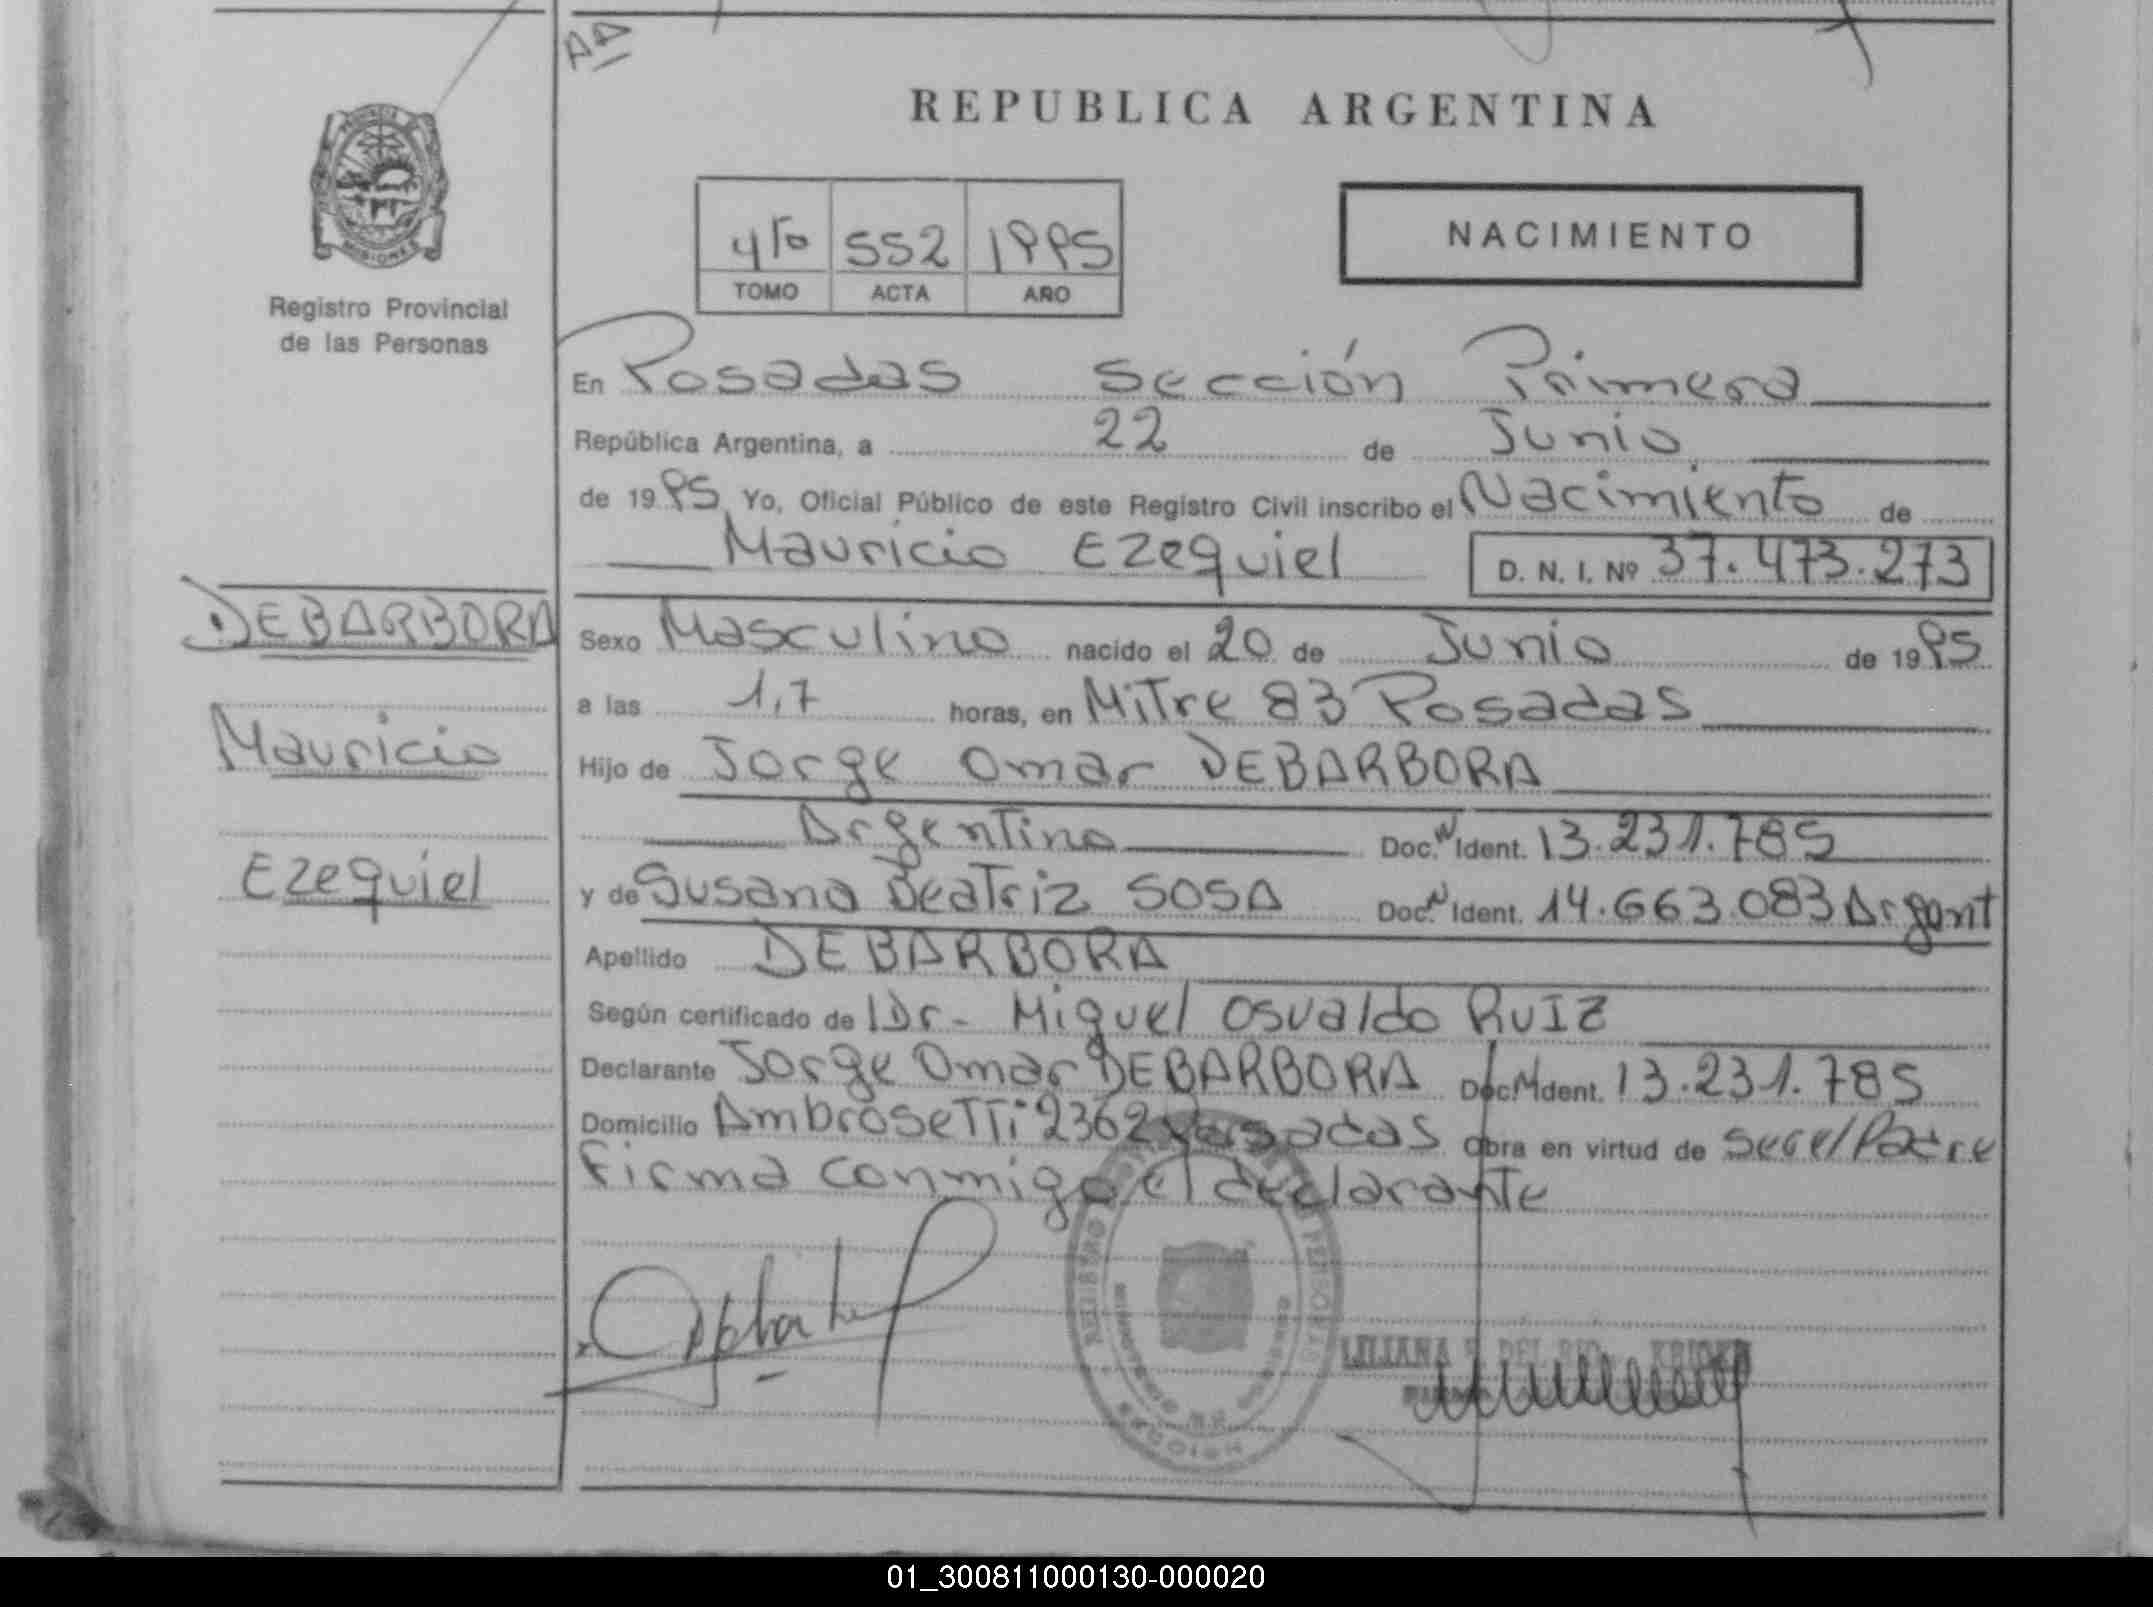 AA
REPUBLICA ARGENTINA
4to 552 1995
TOMO ACTA AÑO
NACIMIENTO
MISIONES
Registro Provincial
de las Personas
En Posadas Sección Primera
República Argentina, a 22 de Junio
de 1995 Yo, Oficial Público de este Registro Civil inscribo el Nacimiento de
Mauricio Ezequiel D. N. I. Nº 37.473.273
DEBARBORA
Mauricio
Ezequiel
Sexo Masculino nacido el 20 de Junio de 1995
a las 1,7 horas, en Mitre 83 Posadas
Hijo de Jorge Omar DEBARBORA
Argentino Doc. N Ident. 13.231.785
y de Susana Beatriz SOSA Doc. N Ident. 14.663.083 Argent
Apellido DEBARBORA
Según certificado de Dr- Miguel Osvaldo RUIZ
Declarante Jorge Omar DEBARBORA Doc. N Ident. 13.231.785
Domicilio Ambrosetti 2362 Posadas Obra en virtud de Ser el Padre
Firma conmigo el declarante
REGISTRO PERSONAS
LILIANA DEL RIO
01_300811000130-000020